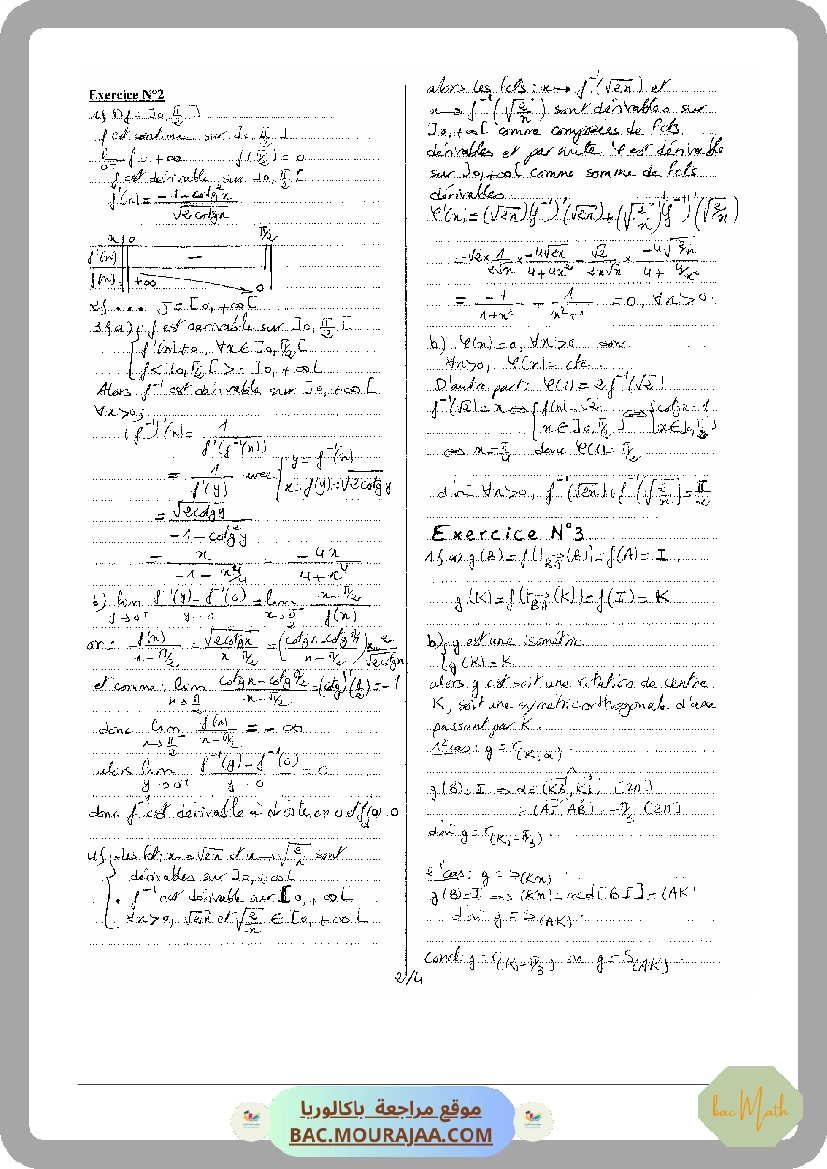 Exercice N°2
1/ Df = ]0, π/2]
f est continue sur ]0, π/2]
lim f = +∞ f(π/2) = 0
0+
f est dérivable sur ]0, π/2[
f'(x) = (-1-cotg²x)/√(2cotgx)
x 0 π/2
f'(x) -
f(x) +∞ 0
2/ .... J = [0, +∞[
3/ a) f est dérivable sur ]0, π/2[
f'(x) ≠ 0, ∀x ∈ ]0, π/2[
f< ]0, π/2[ > = ]0, +∞[
Alors f⁻¹ est dérivable sur ]0, +∞[
∀x>0,
(f⁻¹)'(x) = 1/f'(f⁻¹(x))
= 1/f'(y) avec { y = f⁻¹(x)
x = f(y) = √(2cotgy)
= √(2cotgy)/(-1-cotg²y)
= x/(-1-x⁴/4) = -4x/(4+x⁴)
b) lim y→0+ (f⁻¹(y)-f⁻¹(0))/(y-0) = lim x→π/2 (x-π/2)/f(x)
or: f(x)/(x-π/2) = √(2cotgx)/(x-π/2) = ((cotgx-cotg π/2)/(x-π/2)) × 2/√(2cotgx)
et comme: lim x→π/2 (cotgx-cotg π/2)/(x-π/2) = (cotg)'(π/2) = -1
donc lim x→π/2 f(x)/(x-π/2) = -∞
alors lim y→0+ (f⁻¹(y)-f⁻¹(0))/(y-0) = 0
donc f⁻¹ est dérivable à droite en 0
4/ • les fct: x→√(2x) et x→√(2/x) sont
dérivables sur ]0, +∞[
• f⁻¹ est dérivable sur [0, +∞[
∀x>0, √(2x) et √(2/x) ∈ [0, +∞[
alors les fcts: x→ f⁻¹(√(2x)) et
x→ f⁻¹(√(2/x)) sont dérivables sur
]0, +∞[ comme composées de fcts
dérivables et par suite φ est dérivable
sur ]0, +∞[ comme somme de fcts
dérivables
φ'(x) = (√(2x))'(f⁻¹)'(√(2x)) + (√(2/x))'(f⁻¹)'(√(2/x))
= -1/(1+x²) + 1/(x²+1) = 0, ∀x>0
b) φ'(x) = 0, ∀x>0
∀x>0, φ(x) = cte
D'autre part: φ(1) = 2f⁻¹(√2)
f⁻¹(√2) = x ⇔ { f(x) = √2 ⇔ { cotgx = 1
x ∈ ]0, π/2] x ∈ ]0, π/2]
⇔ x = π/4 donc φ(1) = π/2
d'où ∀x>0, f⁻¹(√(2x)) + f⁻¹(√(2/x)) = π/2
Exercice N°3
g(K) = f(I) = K
b) g est une isométrie
g(K) = K
alors g est soit une rotation de centre
K, soit une symétrie orthogonale d'axe
passant par K.
1er cas: g = r(K, α)
d'où g = r(K, -π/3)
2e cas: g = S(Kx)
g(B) = I ⇒ (Kx) = méd[BI] = (AK)
d'où g = S(AK)
Concl: g = r(K, -π/3) ou g = S(AK)
2/4
موقع مراجعة باكالوريا
BAC.MOURAJAA.COM
bac Math